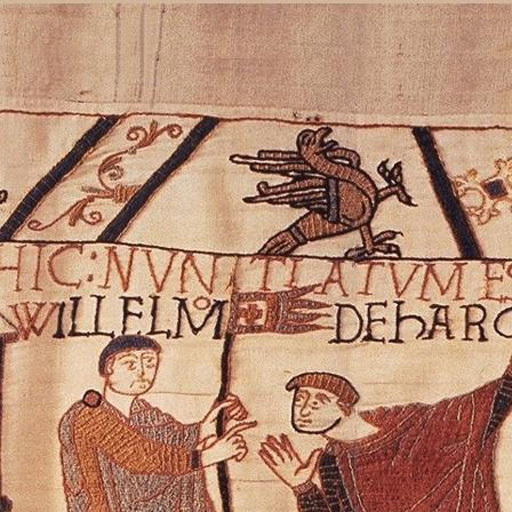 HIC: NVNTIATVM E
WILLELMO DE hARO